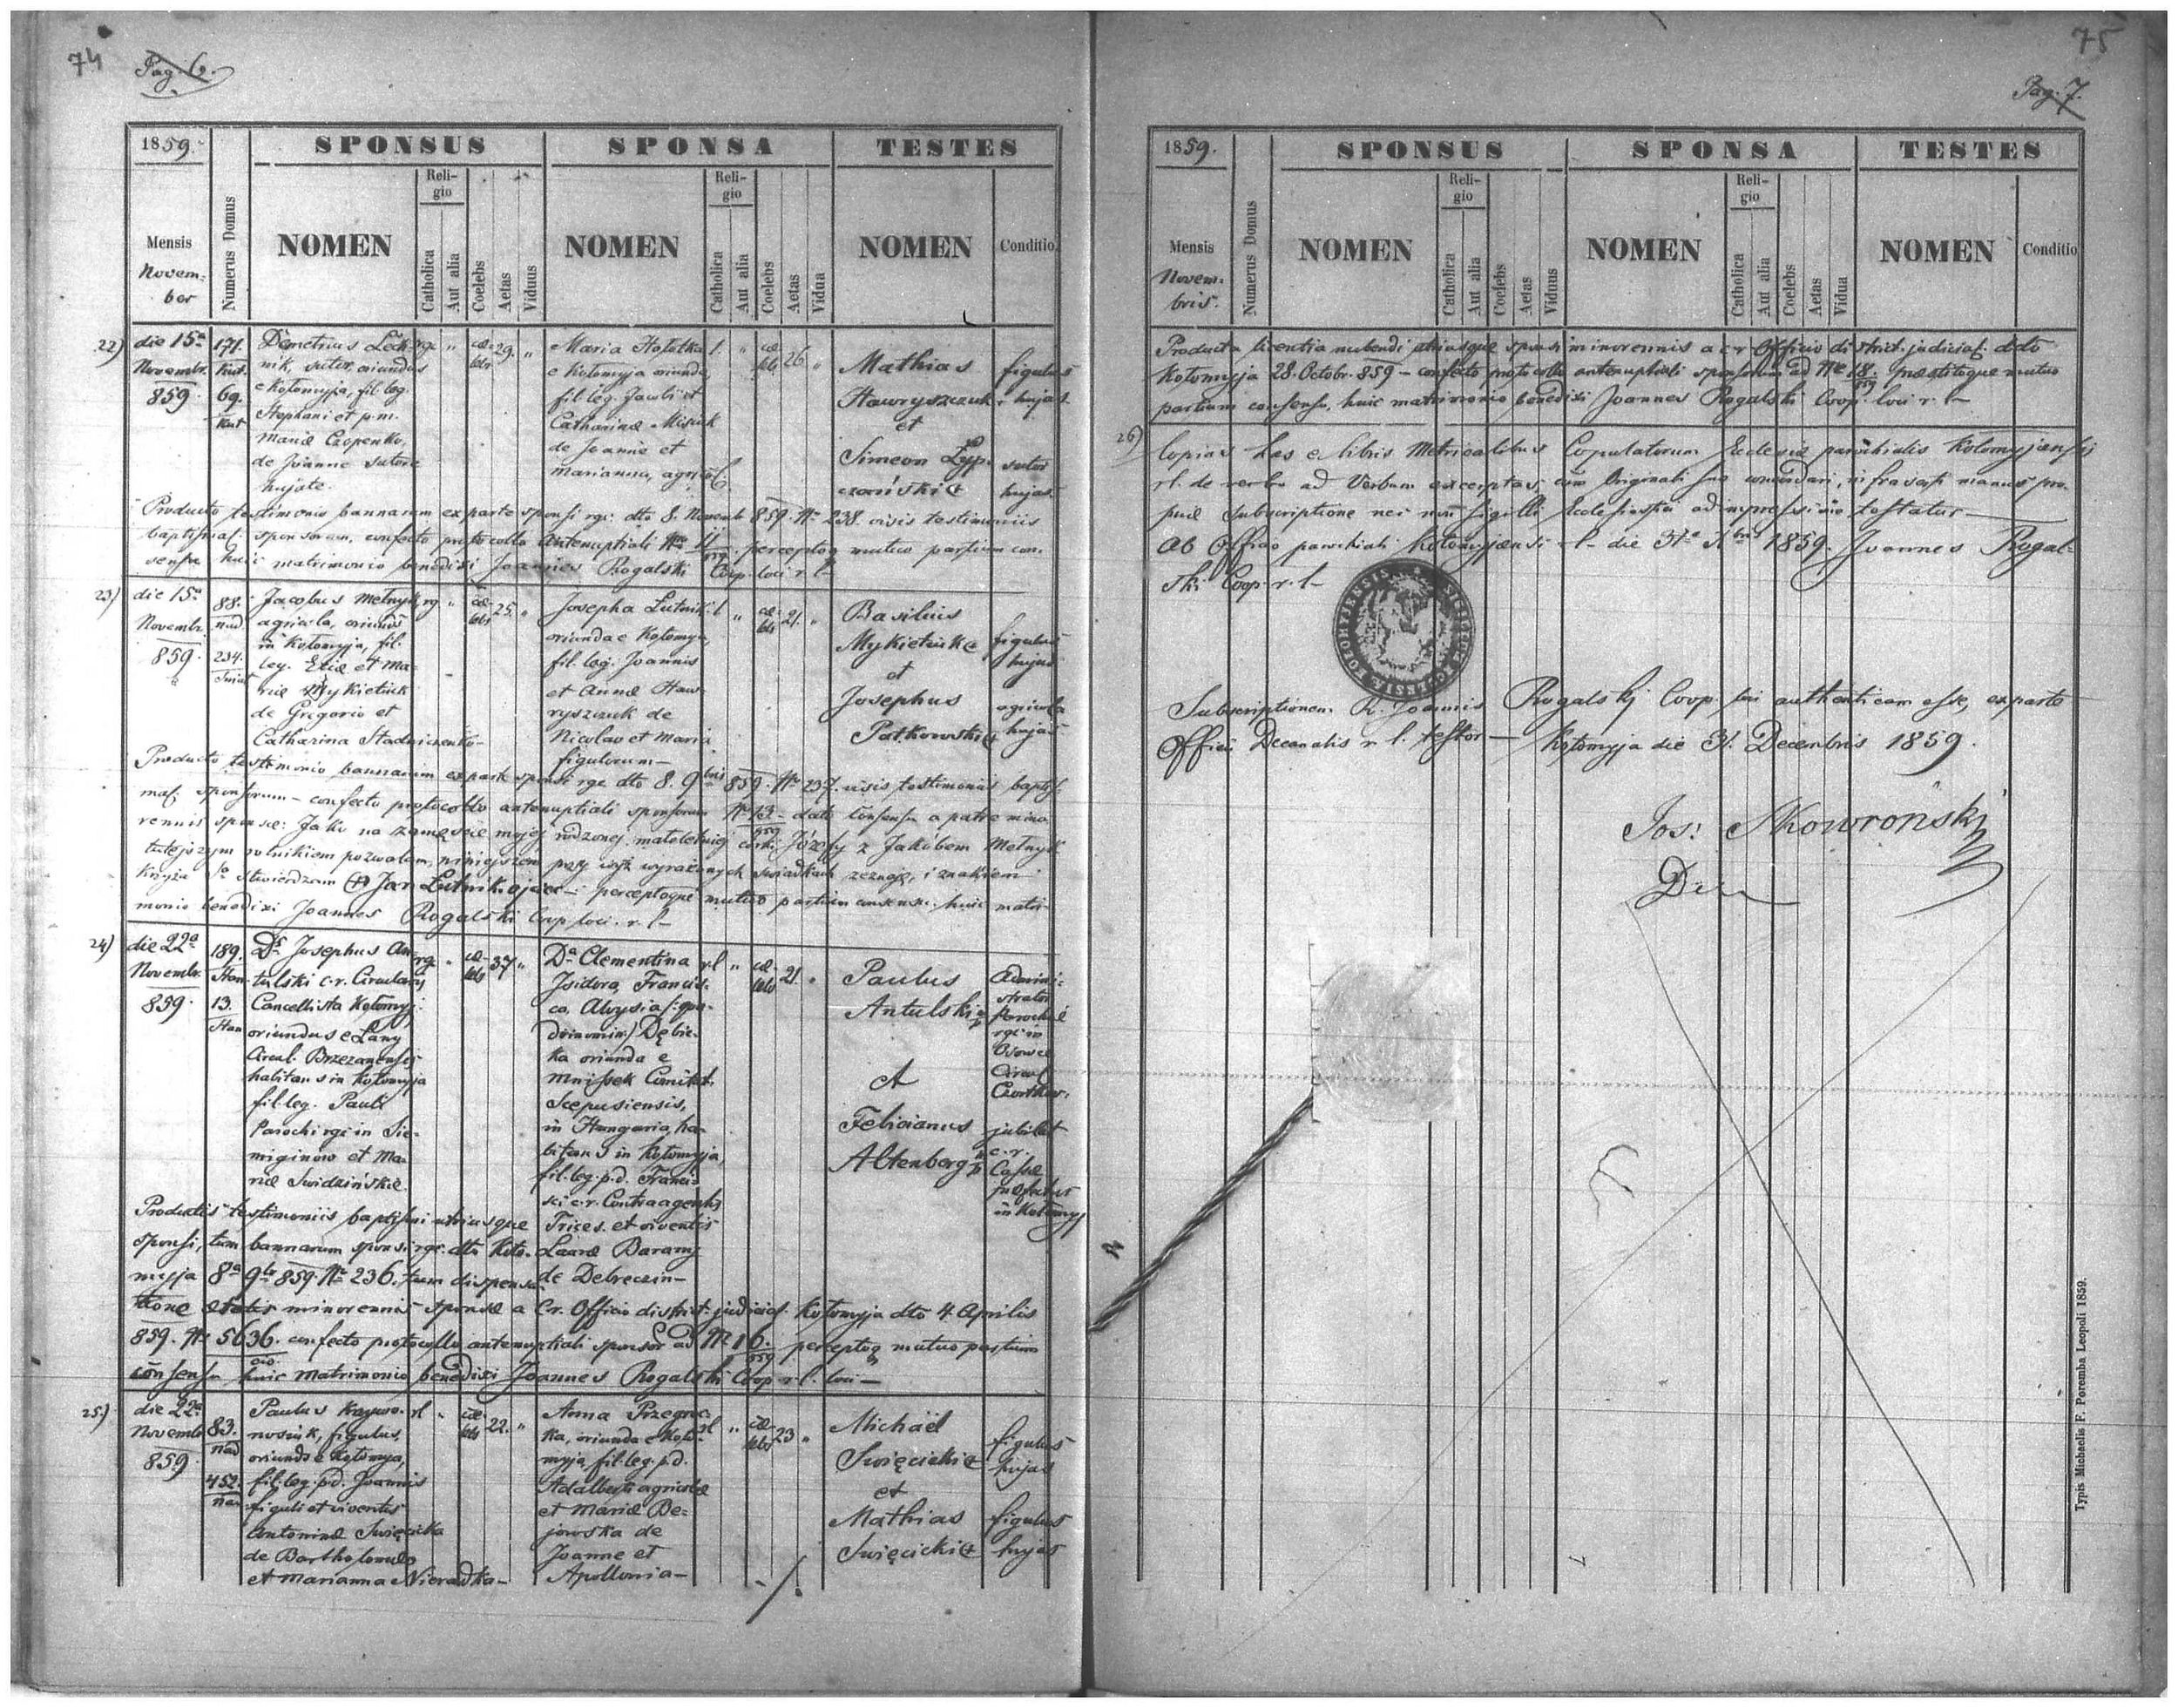 74
Pag. 6.
1859.
SPONSUS
SPONSA
TESTES
Mensis
Novem-
ber
Numerus Domus
NOMEN
Reli-
gio
Catholica
Aut alia
Coelebs
Aetas
Viduus
NOMEN
Reli-
gio
Catholica
Aut alia
Coelebs
Aetas
Vidua
NOMEN
Conditio
22)
die 15a
Novembr.
859
171.
69.
Demetrius
nik, sutor, oriundus
e Kołomyja, fil. leg.
Stephani et p.m.
Mariæ Czopenko,
de Joanne sutore
hujate.
rgc " cæ- lebs 29. "
Maria Hołutka
e Kołomyja oriunda,
fil. leg. Pauli et
Catharinæ Misiuk
de Joanne et
Marianna, agricol.
l. " cæ lebs 26. "
Mathias
Hawryszczuk
et
Simeon
figulus
hujas
sutor
hujas
Producto testimonio bannarum ex parte sponsi rgc. dto 8. Novemb. 859. No 238. visis testimoniis
baptismal. sponsorum, confecto protocollo antenuptiali No perceptoq mutuo partium con-
sensu huic matrimonio benedixi Joannes Rogalski Coop. loci r. l-
23)
die 15a
Novembr.
859.
88.
nad.
234.
Jacobus Melnyk
agricola, oriundus
in Kołomyja, fil.
leg. Eliæ et Ma-
riæ Mykietiuk
de Gregorio et
Catharina Stadniczenko-
rg " cæ- lebs 25. "
Josepha Lutnik
oriunda e Kołomyja,
fil. leg. Joannis
et Annæ Haw-
ryszczuk de
Nicolao et Maria
figulorum-
l " cæ lebs 21. "
Basilius
Mykietiuk
et
Josephus
Patkowski
figulus
hujas
agricola
hujas
Producto testimonio bannarum ex parte sponsi rgc dto 8. 9bris 859. No 237. visis testimoniis baptis-
mal. sponsorum - confecto protocollo antenuptiali sponsorum No 13 - dato consensu a patre mino-
rennis sponsæ: Jako na zamęście mojej rodzonej małoletniej córki Józefy z Jakóbem Melnyk
tutejszym rolnikiem pozwalam, niniejszem przy wyż wyrażonych świadkach zeznaję, i znakiem
Krzyża Sgo stwierdzam Jan Lutnik ojciec - perceptoque mutuo partium consensu huic matri-
monio benedixi Joannes Rogalski Coop loci r. l-
24)
die 22a
Novembr.
859
189.
13.
Dr. Josephus An-
tulski c.r. Circularis
Cancellista Kołomyj.
oriundus e Łany
Circul. Brzezanensis
habitans in Kołomyja
fil. leg. Pauli
Parochi rgc in Sie-
miginow et Ma-
riæ Swidzińskie
rgc " cæ- lebs 37 "
Da Clementina
Isidora, Francis-
ca, Aloysia
Dębic-
ka oriunda e
Mnissek Comitat.
Scepusiensis,
in Hungaria, ha-
bitans in Kołomyja,
fil. leg. p.d. Francis-
sci c.r. Contraagentis
Trices. et viventis
Lauræ Barany
de Debreczin-
r.l " cæ- lebs 21. "
Paulus
Antulski
et
Felicianus
Altenberg
Admini-
strator
Parochiæ
rgc in
Circul
Czortkow.
jubilat
c.r.
Cassæ
præfectus
in Kołomyj
Productis testimoniis baptismi utriusque
sponsi, tum bannarum sponsi rgc. dto Koło-
myja 8a 9br 859. No 236. tum dispensa-
tione ætatis minorennis sponsæ a C.r. Officio district. judicial. Kołomyja dto 4. Aprilis
859. No 5636. confecto protocollo antenuptiali sponsor. ad No 16. perceptoq mutuo partium
859
consensu huic matrimonio benedixi Joannes Rogalski Coop r. l. loci -
25.)
die 22a
Novembr
859
83.
nad
452.
Paulus Krzywo-
nosiuk, figulus,
oriundus e Kołomyja,
fil. leg. p.d. Joannis
figuli et viventis
Antoninæ Swięcicka
de Bartholomæo
et Marianna Nieradka-
rl " cæ- lebs 22. "
Anna
ka, oriunda e Koło-
myja, fil. leg. p.d.
Adalberti agricolæ
et Mariæ Be-
jowska de
Joanne et
Apollonia-
rl " cæ- lebs 23 "
Michaël
Swięcicki
et
Mathias
Swięcicki
figulus
hujas
figulus
hujas
75
Pag. 7.
1859.
SPONSUS
SPONSA
TESTES
Mensis
Novem-
bris.
Numerus Domus
NOMEN
Reli-
gio
Catholica
Aut alia
Coelebs
Aetas
Viduus
NOMEN
Reli-
gio
Catholica
Aut alia
Coelebs
Aetas
Vidua
NOMEN
Conditio
Producta licentia nubendi utriusque sponsi minorennis a c r Officio district. judicial. ddto
Kołomyja 28. Octobr. 859 - confecto protocollo antenuptiali sponsorum ad No 18. præstitoque mutuo
859
partium consensu, huic matrimonio benedixi Joannes Rogalski Coop. loci r. l-
26)
Copias has e libris Metricalibus Copulatorum Ecclesiæ parochialis Kołomyjensis
rl. de verbo ad Verbum excerptas, cum Originali suo concordari, infrascripti manus pro-
priæ subscriptione nec non sigilli Ecclesiastici adimpressione testatur -
Ab Officio parochiali Kołomyjensi r l- die 31a Xbris 1859. Joannes Rogal-
ski Coop. r. l-
Subscriptionem R. Joannis Rogalskj Coop. sui authenticam esse, ex parte
Officii Decanalis r. l. testor - Kołomyja die 31. Decembris 1859.
Jos: Skowroński
Typis Michaelis F. Poremba Leopoli 1859.